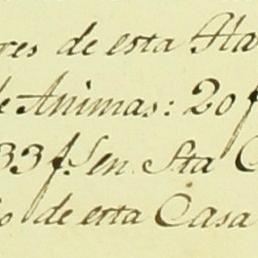 res de esta Sta
de Animas: 20 f
33 f. en Sta C
o de esta Casa